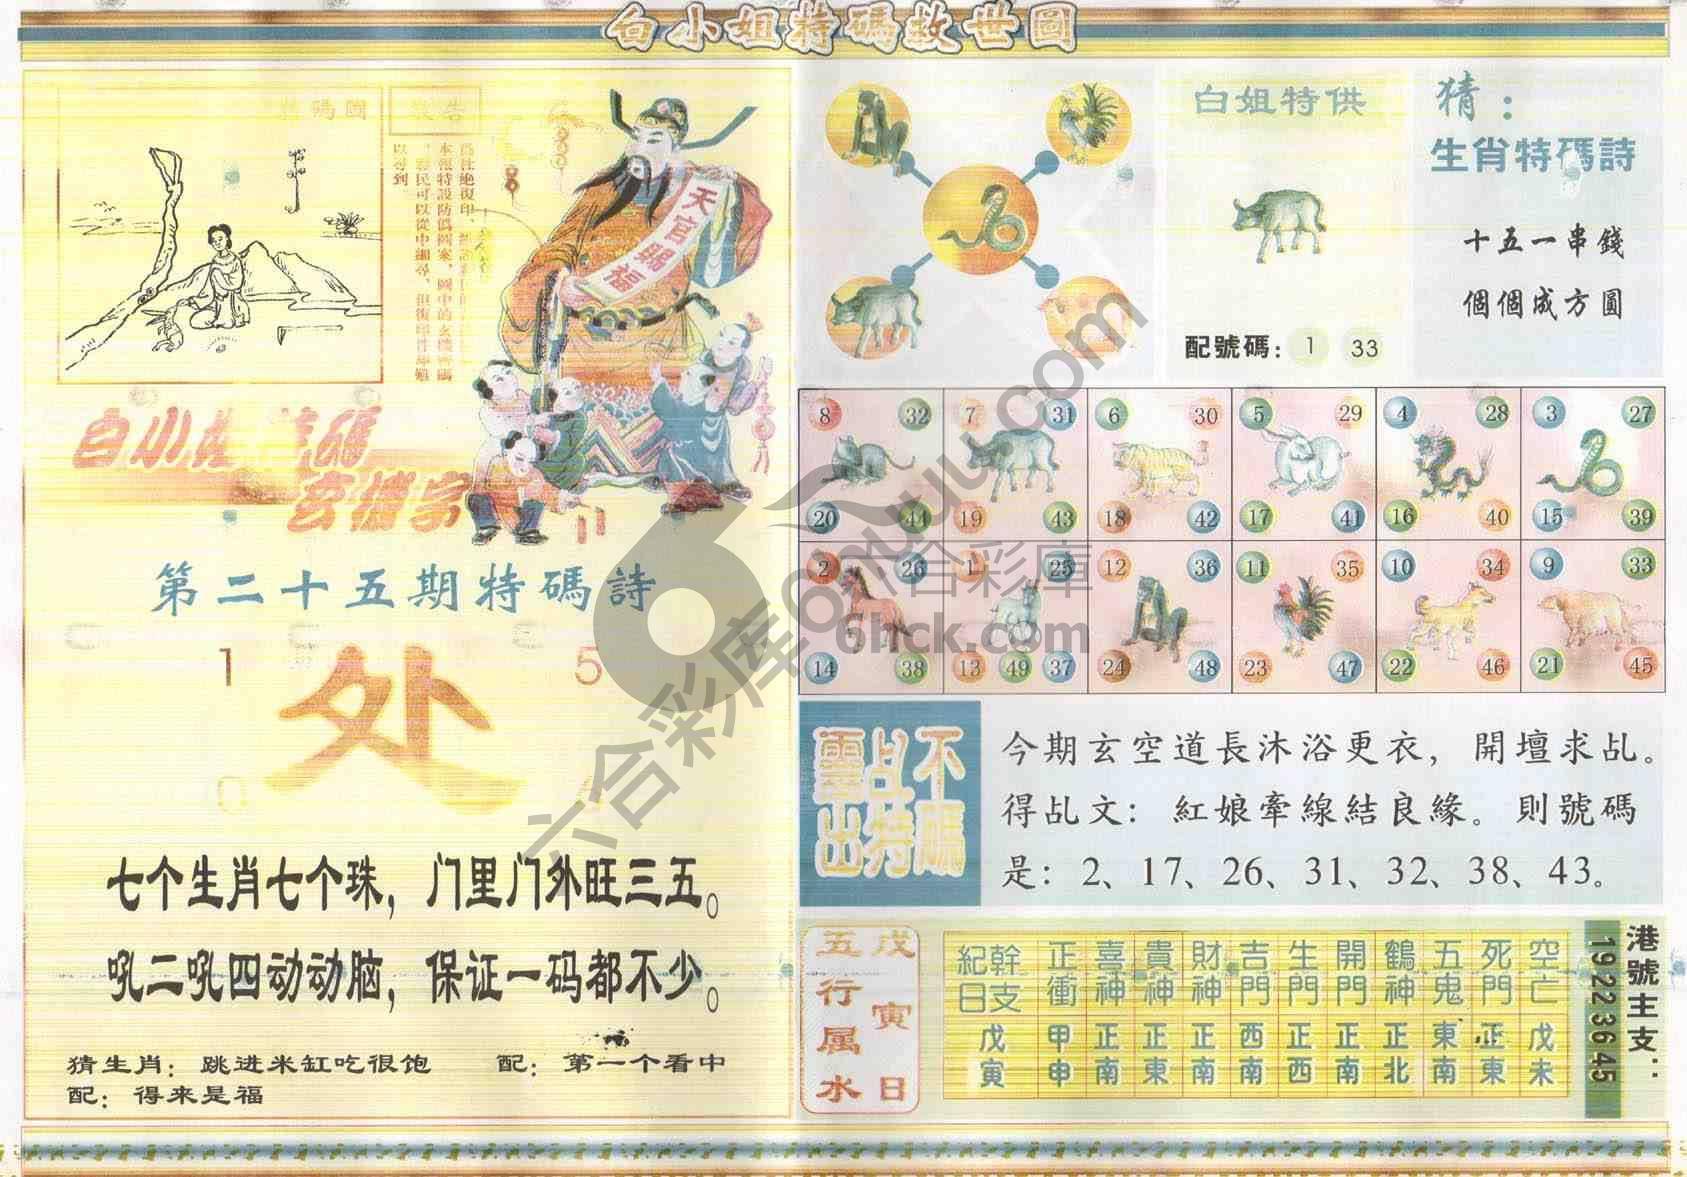 白小姐特碼救世圖
特碼圖
敬告
爲杜絕復印、
本報特設防僞圖案，圖中的玄機
，彩民可以從中細尋，但復印件却難
以尋到
天官賜福
白小姐特碼
玄機字
第二十五期特碼詩
1 5
处
0 4
七个生肖七个珠，门里门外旺三五。
吼二吼四动动脑，保证一码都不少。
猜生肖：跳进米缸吃很饱 配：第一个看中
配：得来是福
白姐特供
配號碼：1 33
猜：
生肖特碼詩
十五一串錢
個個成方圓
8 32 7 31 6 30 5 29 4 28 3 27
20 44 19 43 18 42 17 41 16 40 15 39
2 26 1 25 12 36 11 35 10 34 9 33
14 38 13 49 37 24 48 23 47 22 46 21 45
不碼
乩特
靈出
今期玄空道長沐浴更衣，開壇求乩。
得乩文：紅娘牽線結良緣。則號碼
是：2、17、26、31、32、38、43。
戊寅日
五行属水
幹支紀日 正衝 喜神 貴神 財神 吉門 生門 開門 鶴神 五鬼 死門 空亡
戊寅 甲申 正南 正東 正南 西南 正西 正南 正北 東南 正東 戊未
港號主支：
19 22 36 45
六合彩库
六合彩庫
6hck.com